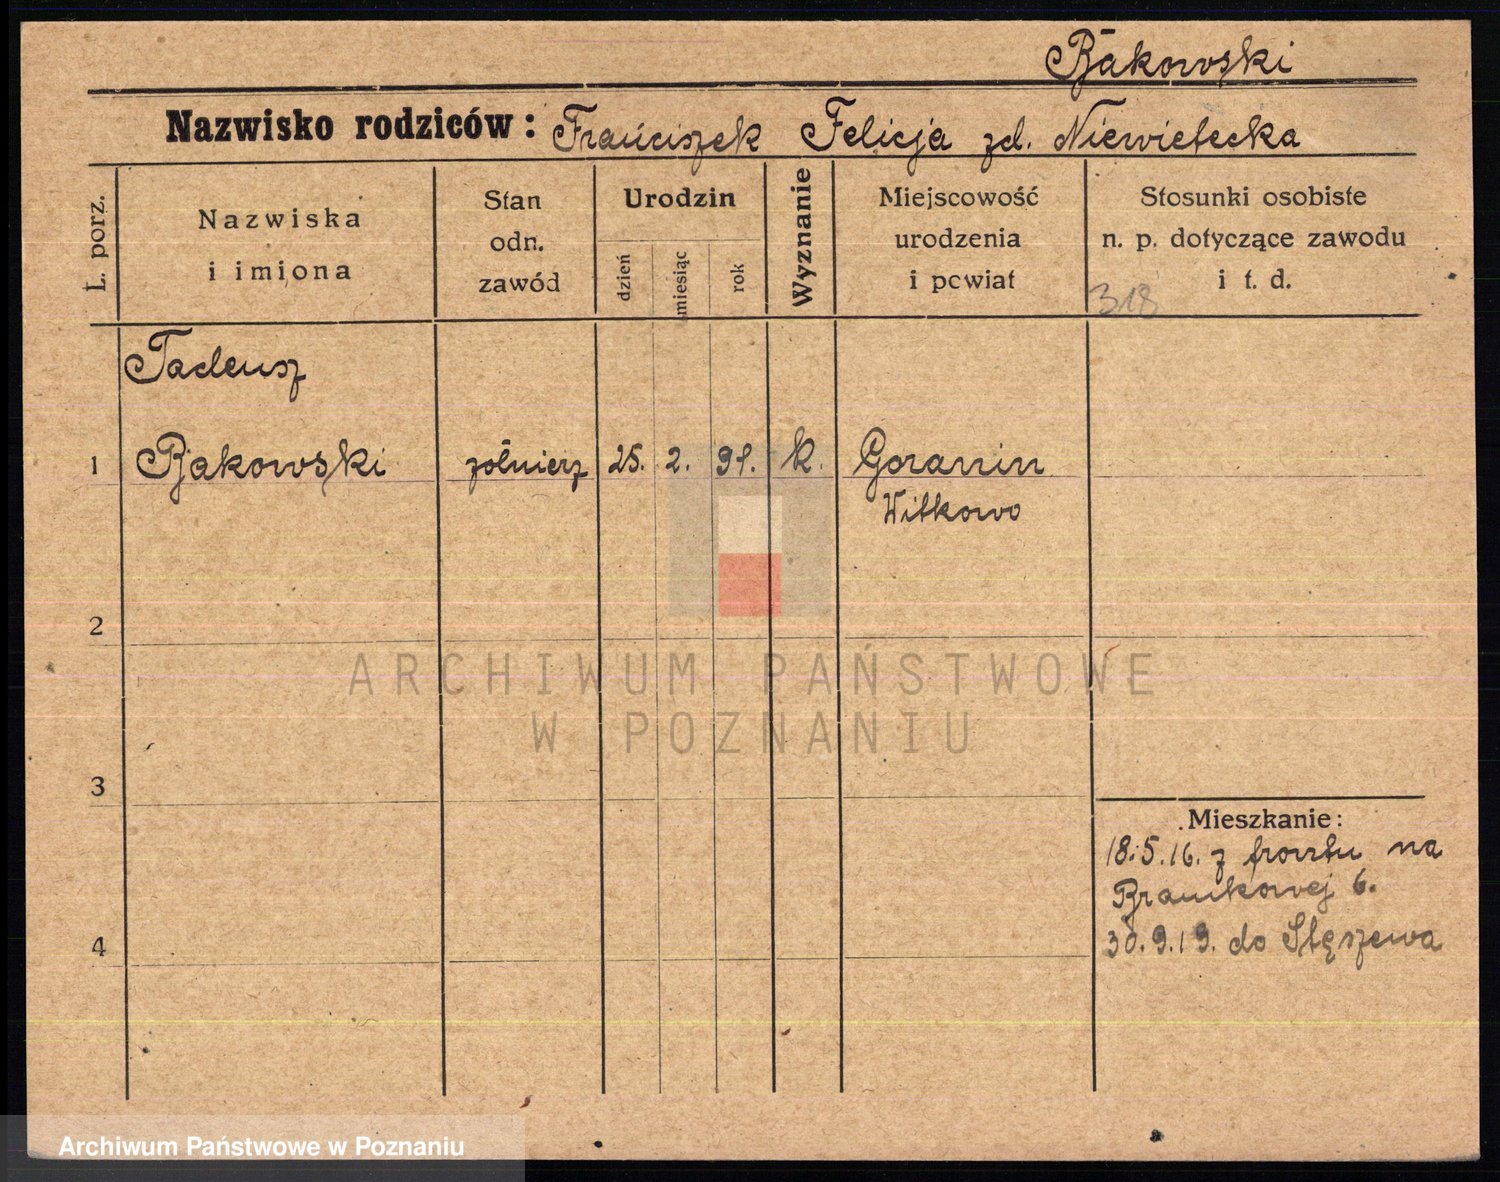 Bąkowski
Nazwisko rodziców: Franciszek Felicja zd. Niewitecka
L. porz.
Nazwiska
i imiona
Stan
odn.
zawód
Urodzin
dzień
miesiąc
rok
Wyznanie
Miejscowość
urodzenia
i powiat
Stosunki osobiste
n. p. dotyczące zawodu
i t. d.
318
Tadeusz
1 Bąkowski żołnierz 25. 2. 91. k. Goranin
Witkowo
2
3
4
Mieszkanie:
18.5.16. z frontu na
6.
30.9.19. do Stęszewa
ARCHIWUM PAŃSTWOWE
W POZNANIU
Archiwum Państwowe w Poznaniu